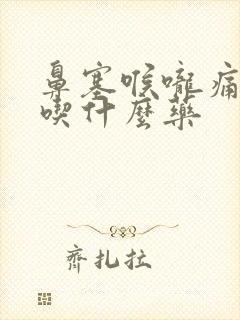 鼻塞喉嚨痛
喫什麼藥
齊扎拉